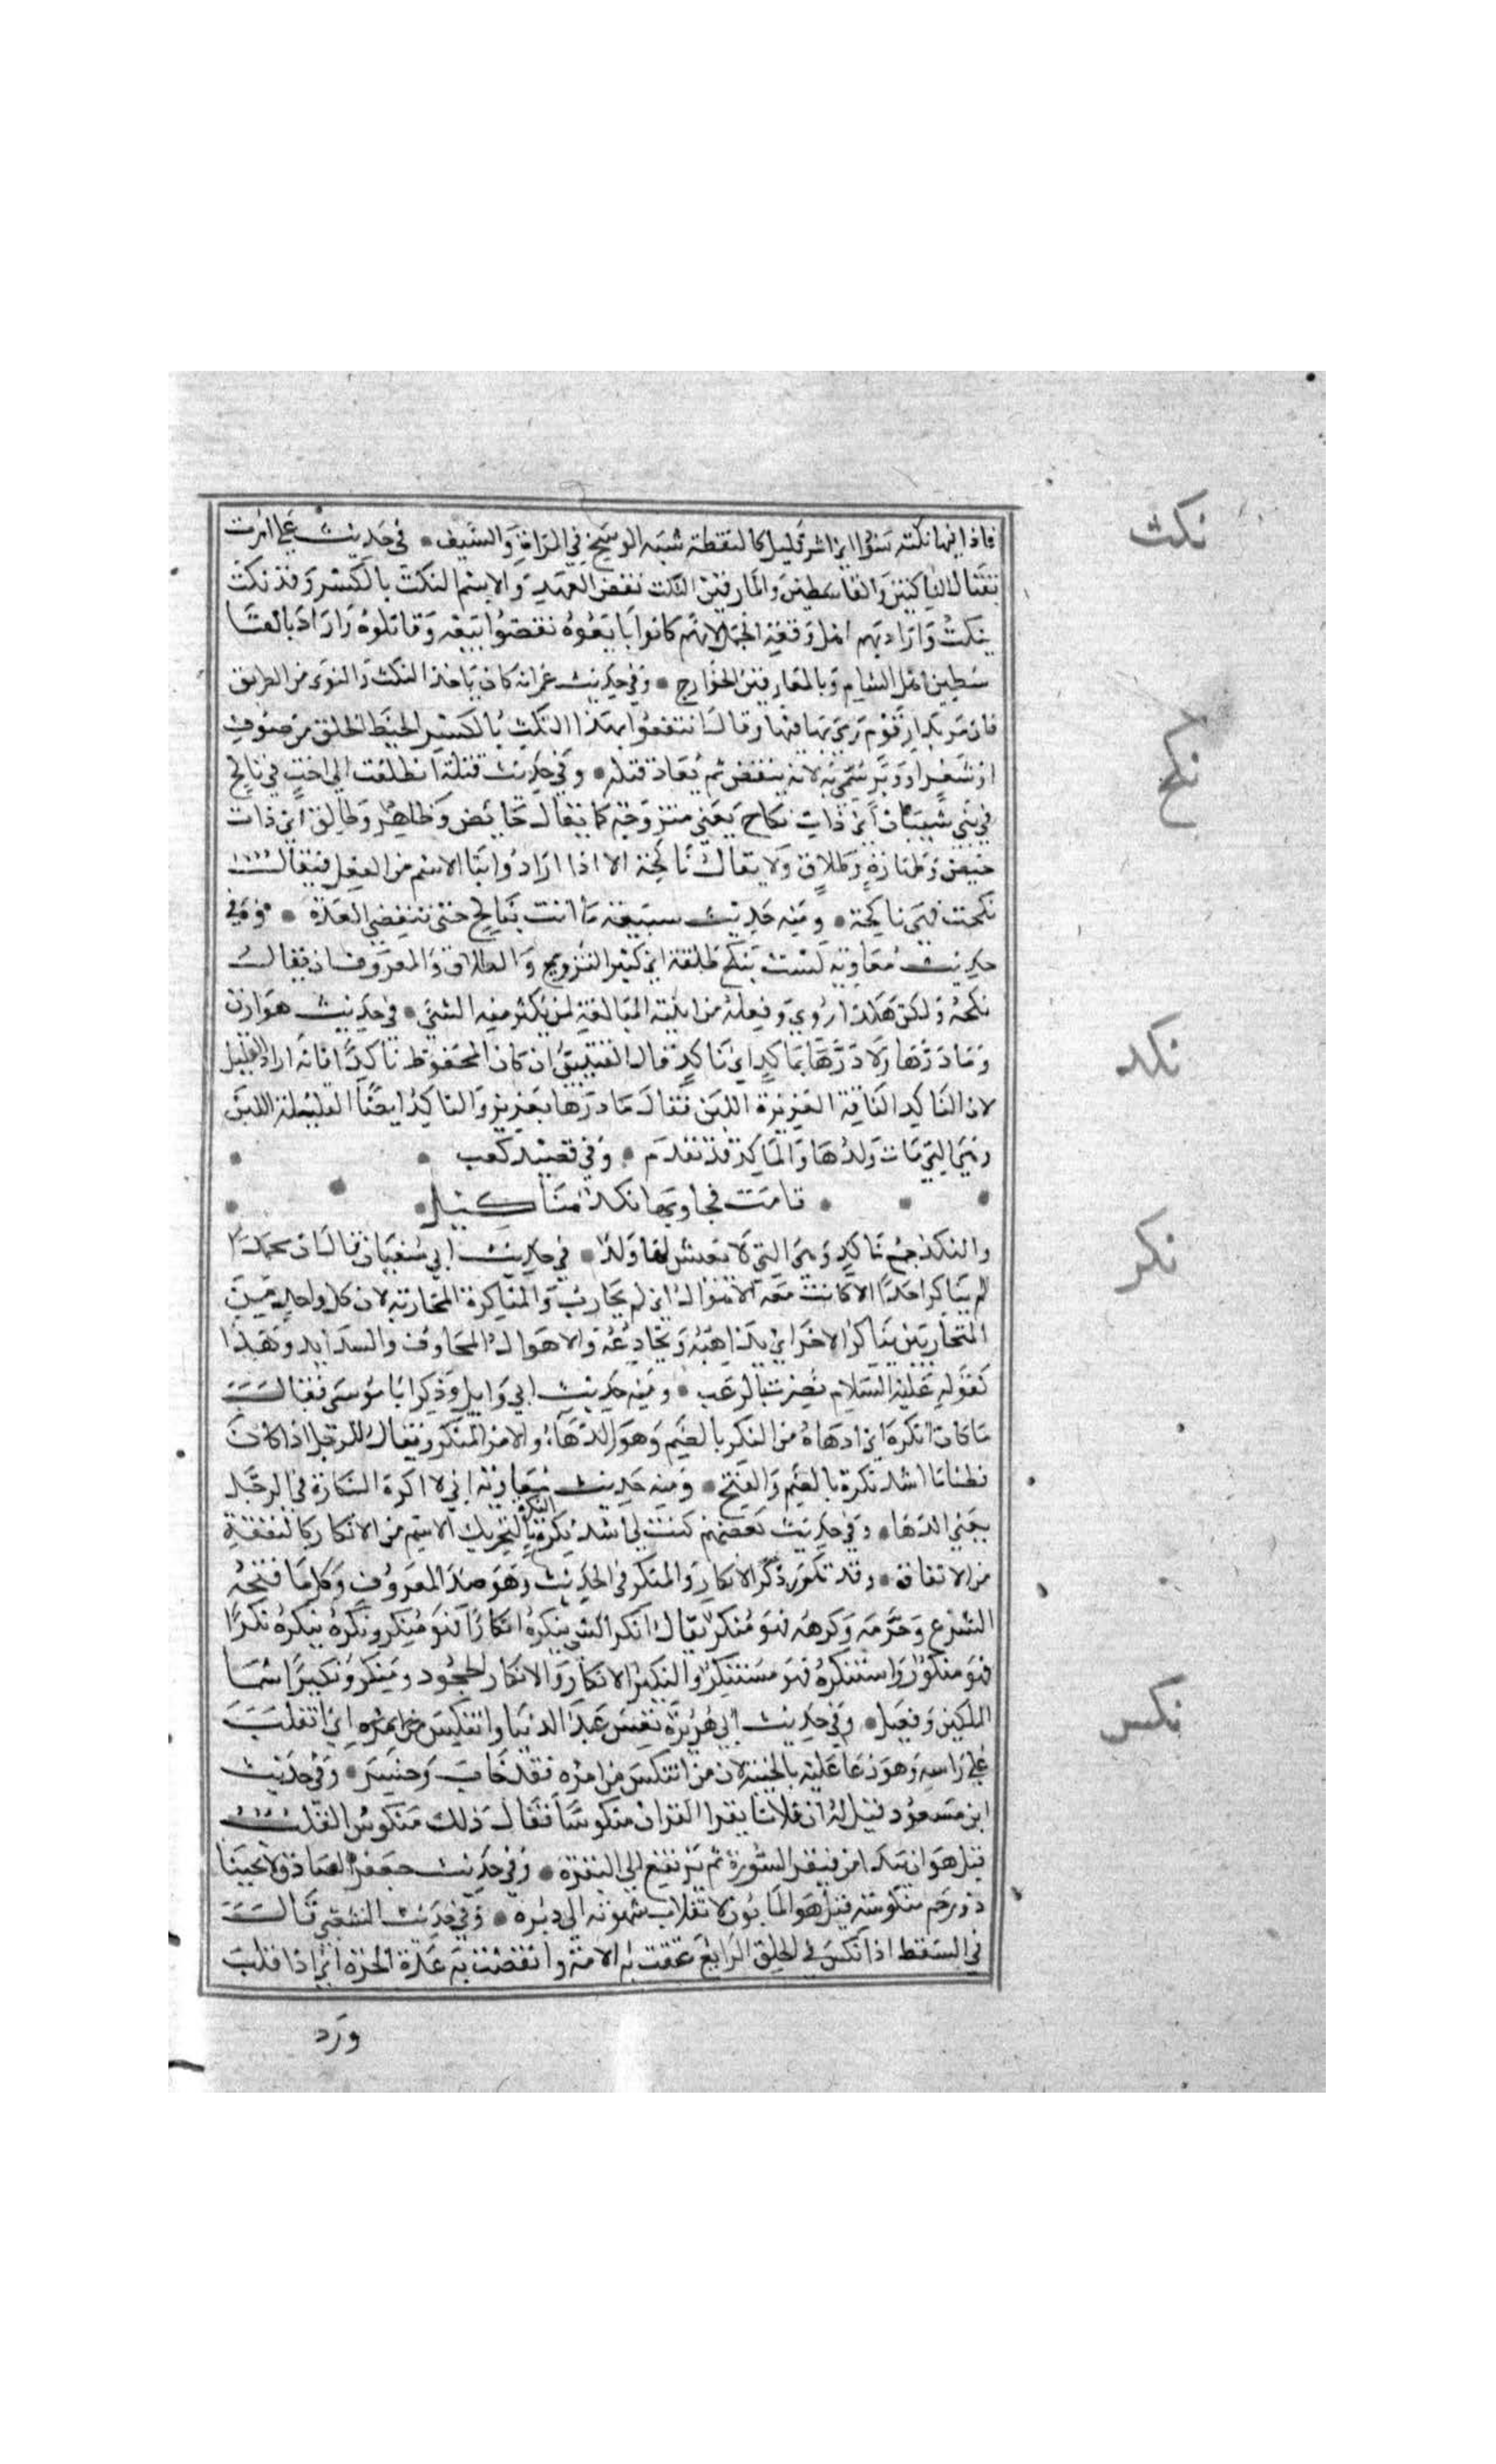 فاذا فيها نكتة سودا اي اثر قليل كالنقطة شبه الوسخ في المراة والسيف في حديث علي امرت
نكث
بقتال الناكثين والقاسطين والمارقين النكث نقض العهد والاسم النكث بالكسر وقد نكث
ينكث وارادبهم اهل وقعة الجمل لانهم كانوا بايعوه نقضوا بيعته وقاتلوه واراد بالقا
سطين اهل الشام وبالمارقين الخوارج وفي حديث عمر انه كان ياخذ النكث والنوى من الطريق
فان مر بدار قوم رمى بها فيها وقال انتفعوا بهذا النكث بالكسر الخيط الخلق من صوف
او شعر او وبر سمي به لانه ينقض ثم يعاد فتله وفي حديث قيلة انطلقت الى اخت لي ناكح
نكح
في بني شيبان اي ذات نكاح يعني متزوجة كما يقال حائض وطاهر وطالق اي ذات
حيض وطهارة وطلاق ولا يقال ناكحة الا اذا ارادوا بنا الاسم من الفعل فيقال
نكحت فهي ناكحة ومنه حديث سبيعة ما انت بناكح حتى تنقضي العدة وفي
حديث معاوية لست بنكح طلقة اي كثير التزويج والطلاق والمعروف ان يقال
نكحة ولكن هكذا روي وفعلة من ابنية المبالغة لمن يكثر منه الشي في حديث هوازن
نكد
وما درها ولا درها بماكد اي ناكد قال القتيبي ان كان المحفوظ ناكدا فانه اراد القليل
لان الناكد الناقة الغزيرة اللبن فقال ما درها بغزيز والناكد ايضا القليلة اللبن
وهي التي مات ولدها والماكد قد تقدم وفي قصيد كعب
قامت فجاوبها نكد مثاكيل
والنكد جمع ناكد وهي التي لا يعيش لها ولد في حديث ابي سفيان قال ان محمدا
نكر
لم يناكر احدا الا كانت معه الاهوال اي لم يحارب والمناكرة المحاربة لان كل واحد من
المتحاربين يناكر الاخر اي يداهيه ويخادعه والاهوال المخاوف والشدايد وهذا
كقوله عليه السلام نصرت بالرعب ومنه حديث ابي وايل وذكر ابا موسى فقال
ما كان انكره اي ادهاه من النكر بالضم وهو الدهاء والامر المنكر ويقال للرجل اذا كان
فطنا ما اشد نكره بالضم والفتح ومنه حديث معاوية اني لا اكره النكارة في الرجل
يعني الدها وفي حديث بعضهم كنت لي اشد نكرة النكرة بالتحريك الاسم من الانكار كالنفقة
من الانفاق وقد تكرر ذكر الانكار والمنكر في الحديث وهو ضد المعروف وكل ما قبحه
الشرع وحرمه وكرهه فهو منكر يقال انكر الشي ينكره انكارا فهو منكر ونكره ينكره نكرا
فهو منكور واستنكره فهو مستنكر والنكير الانكار والانكار الجحود ومنكر ونكير اسما
الملكين وفعيل وفي حديث ابي هريرة تعس عبد الدنيا وانتكس اي انقلب
نكس
على راسه وهو دعا عليه بالخيبة لان من انتكس في امره فقد خاب وخسر وفي حديث
ابن مسعود قيل له ان فلانا يقرا القران منكوسا فقال ذلك منكوس القلب
قيل هو ان يبدا من فيقر السورة ثم يرتفع الى البقرة وفي حديث جعفر الصادق لا يحبنا
ذو رحم منكوسة قيل هو المابون لانقلاب شهوته الى دبره وفي حديث الشعبي قال
في السقط اذا نكس في الخلق الرابع عتقت به الامة وانقضت به عدة الحرة اي اذا قلب
ورد